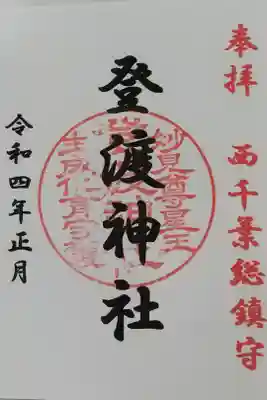 奉拝
西千葉総鎮守
登渡神社
妙見尊星王
令和四年正月